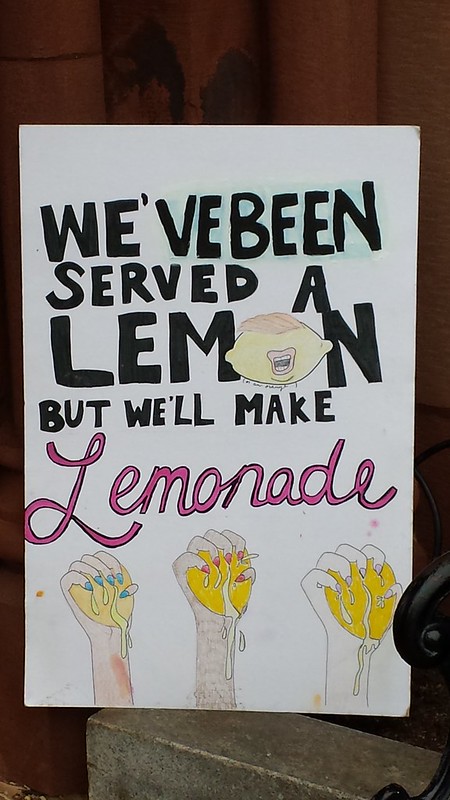 WE'VE BEEN
SERVED A
LEMON
BUT WE'LL MAKE
Lemonade